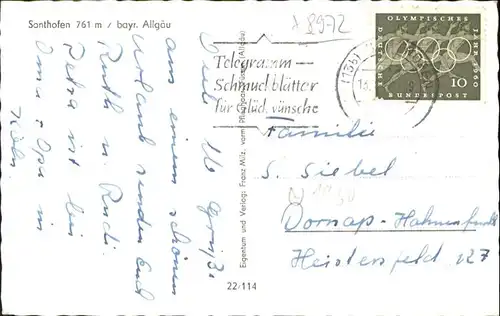 Santhofen 761 m / bayr. Allgäu
Viele Grüße
aus einem schönen
Urlaub senden Euch
Ruth u. Rudi.
Petra ist bei
Oma + Opa in
Köln
Eigentum und Verlag: Franz Milz, vorm.
22/114
8972
Telegramm —
Schmuckblätter
für Glückwünsche
OLYMPISCHES
JAHR 1960
DEUTSCHE
BUNDESPOST
10
Familie
S. Siebel
Dornap-Hahnenfurth
Heistersfeld 127